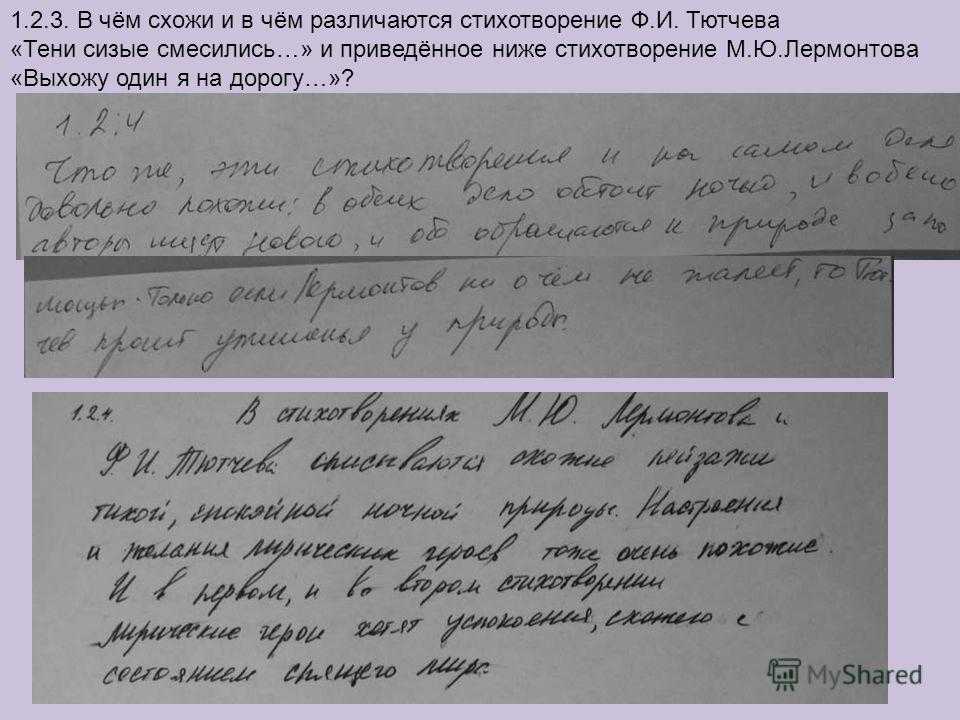 1.2.3. В чём схожи и в чём различаются стихотворение Ф.И. Тютчева
«Тени сизые смесились…» и приведённое ниже стихотворение М.Ю.Лермонтова
«Выхожу один я на дорогу…»?
1.2.4
Что же, эти стихотворения и на самом деле
довольно похожи: в обеих дело обстоит ночью, и в обеих
авторы ищут нового, и оба обращаются к природе за по
мощью. Только если Лермонтов ни о чём не жалеет, то Тют-
чев просит у природы.
1.2.4. В стихотворениях М.Ю. Лермонтова и
Ф.И. Тютчева описываются схожие пейзажи
тихой, спокойной ночной природы. Настроения
и желания лирических героев тоже очень похожие.
И в первом, и во втором стихотворении
лирические герои хотят успокоения, схожего с
состоянием спящего мира.
MyShared